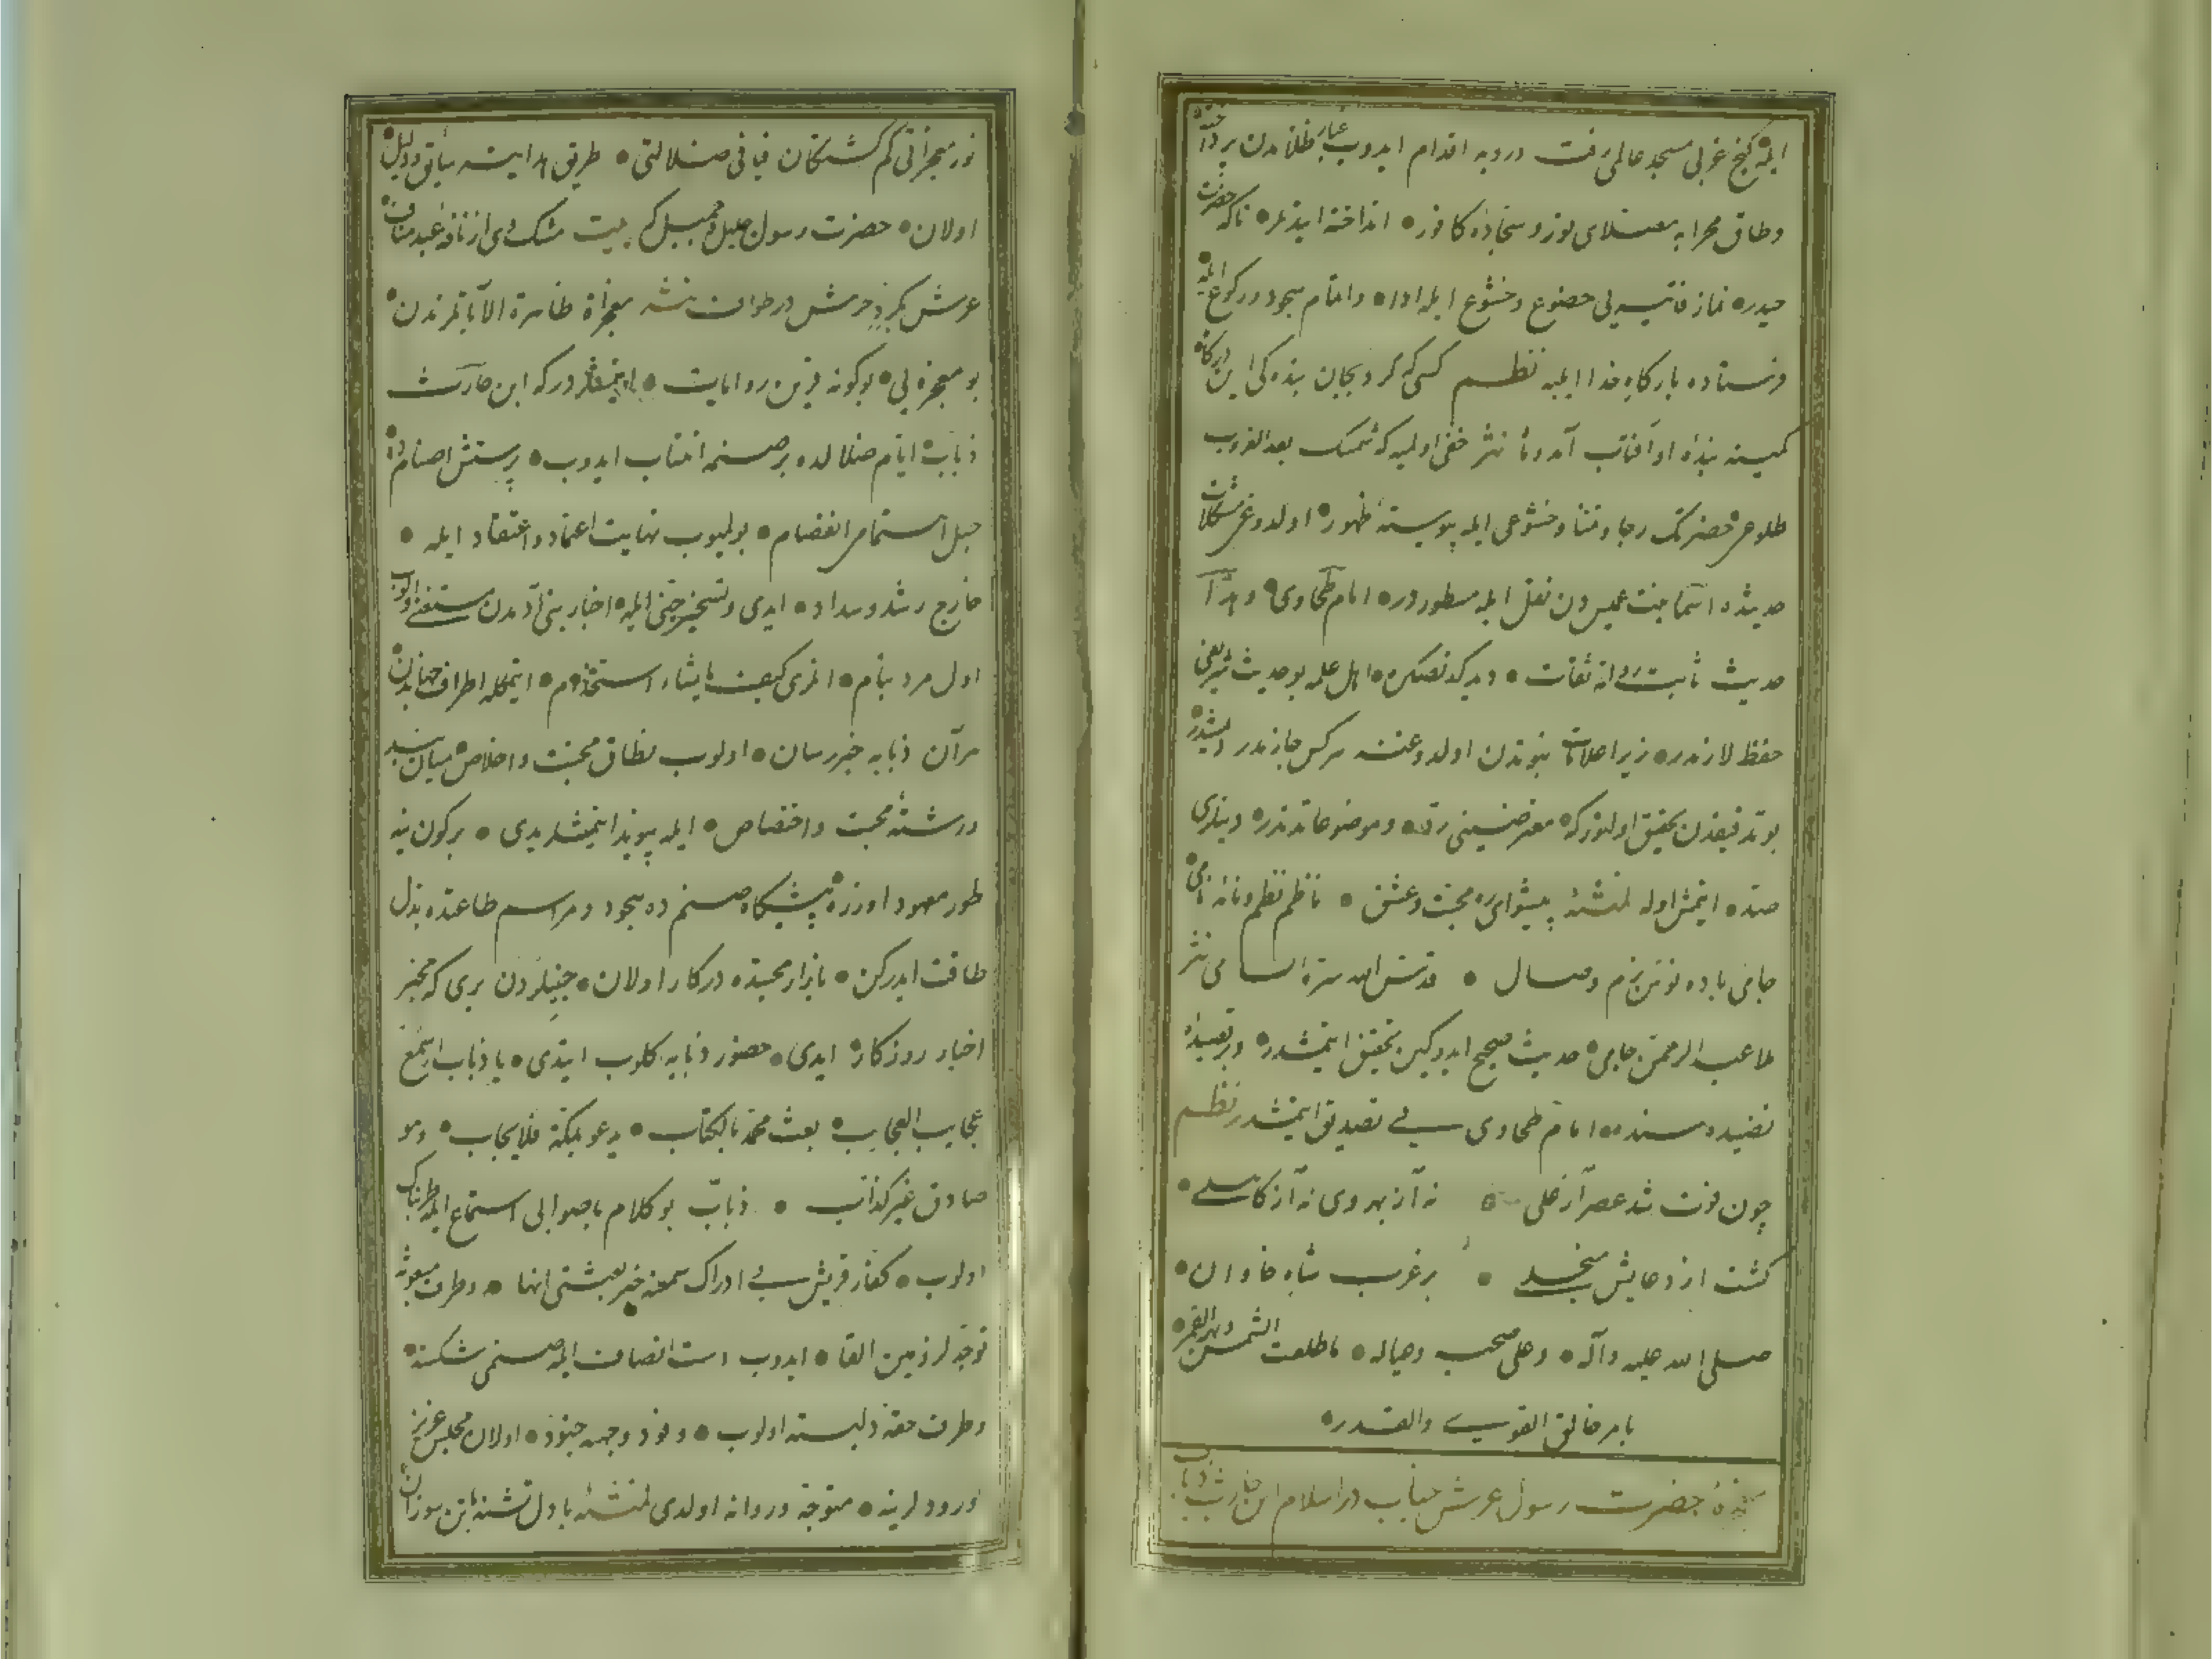 ايله كنج غربی مسجد عالی رفت دروبه اقدام ايدوب غبار ظلامدن پرداخته
وطاق محرابه مصلای نور و سجاده كافور انداخته ايتديلر تاكه حضرت
حيدر نماز فائتيه لی خضوع وخشوع ايله ادا واتمام سجود وركوع ايله
فرستاده بارگاه خدا ايليه نظم كسی كه كرد بجان بندگی اين درگاه
كمينه بنده او آفتاب آمد وماه نثر خفی اولميه كه شمسك بعد الغروب
طلوعی حضرتك رجا وتمنا وخشوعی ايله پيوسته ظهور اولدوغی مشكلات
حديثده اسما بنت عميس دن نقل ايله مسطوردر امام طحاوی وهذا
حديث ثابت رواته ثقات ديد كدنصكره اهل علمه بو حديث شريفی
حفظ لازمدر زيرا علامات نبوتدن اولدوغنه هركس جازمدر ديمشدر
بو تدقيقدن تحقيق اولنور كه معترضينی رد وموضوعاتدندر ديناری
صد ايتمش اوله لمنشئه پيشوای ره محبت وعشق ناظم نظم ونامه نامی
جامی باده نوش بزم وصال قدس الله سره السامی نثر
ملا عبد الرحمن جامی حديث صحيح ايدوكين تحقيق ايتمشدر وبر قصيده
نضيده سنده امام طحاوی يی تصديق ايتمشدر نظم
چون فوت شد عصر از علی نه از بهر وی نه از كاهلی
كشت از دعايش منجلی بر غرب شاه خاوران
صلی الله عليه وآله وعلی صحبه وعياله ما طلعت الشمس وبهر القمر
بامر خالق القوی والقدر
معجزه حضرت رسول عرش جناب در اسلام ابن حارث ذباب
نور معجزاتی گم كشتگان فيافی ضلالتی طريق هدايته سائق ودليل
اولان حضرت رسول جليل وجميل كه بيت مشك وی از نافه عبد مناف
عرش بگرد حرمش در طواف نثر معجزاة ظاهرة الآياتلرندن
بو معجزه يی بو كونه قرين روايت ايتمشلردر كه ابن حارث
ذباب ايام ضلالده بر صنمه انتساب ايدوب پرستش اصنامه
حبل استمام انفصام بوليوب نهايت اعتماد واعتقاد ايله
خارج رشد وسداد ايدی وتسخير جنی ايله اخبار بنی آدمدن مستغنی اولوب
اول مرد بنام انلری كيف ما يشاء استخدام ايتمكله اطراف جهاندن
هر آن ذبابه خبر رسان اولوب نطاق محبت واخلاص ميان بند
ورشته محبت واختصاص ايله پيوند ايتمشلريدی بر كون ينه
طور معهود اوزره پيشگاه صنم ده سجود ومراسم طاعتده بذل
طاقت ايدركن بازار محبتده دركار اولان جنيلردن بری كه مخبر
اخبار روزگار ايدی حضور ذبابه كلوب ايتدی يا ذباب اسمع
عجايب العجاب بعث محمد بالكتاب يدعو بمكة فلا يجاب وهو
صادق غير كذاب ذباب بو كلام با صوابی استماع ايله طربناك
اولوب كفار قريش يی ادراك سمعنه خبر بعثتی انها وطرف مبعوثه
توجه لر ذمين القا ايدوب دست انصاف ايله صنمی شكسته
وطرف حقه دلبسته اولوب وفود وجهه جنود اولان مجلس عزيز
الورودلرينه متوجه وروانه اولدی لمنشئه با دل تشنه با تن سوزان